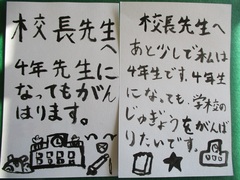 校長先生へ
4年先生に
なってもがん
ばります。
校長先生へ
あと少しで私は
4年生です。4年生
になっても、学校の
じゅぎょうをがんば
りたいです。